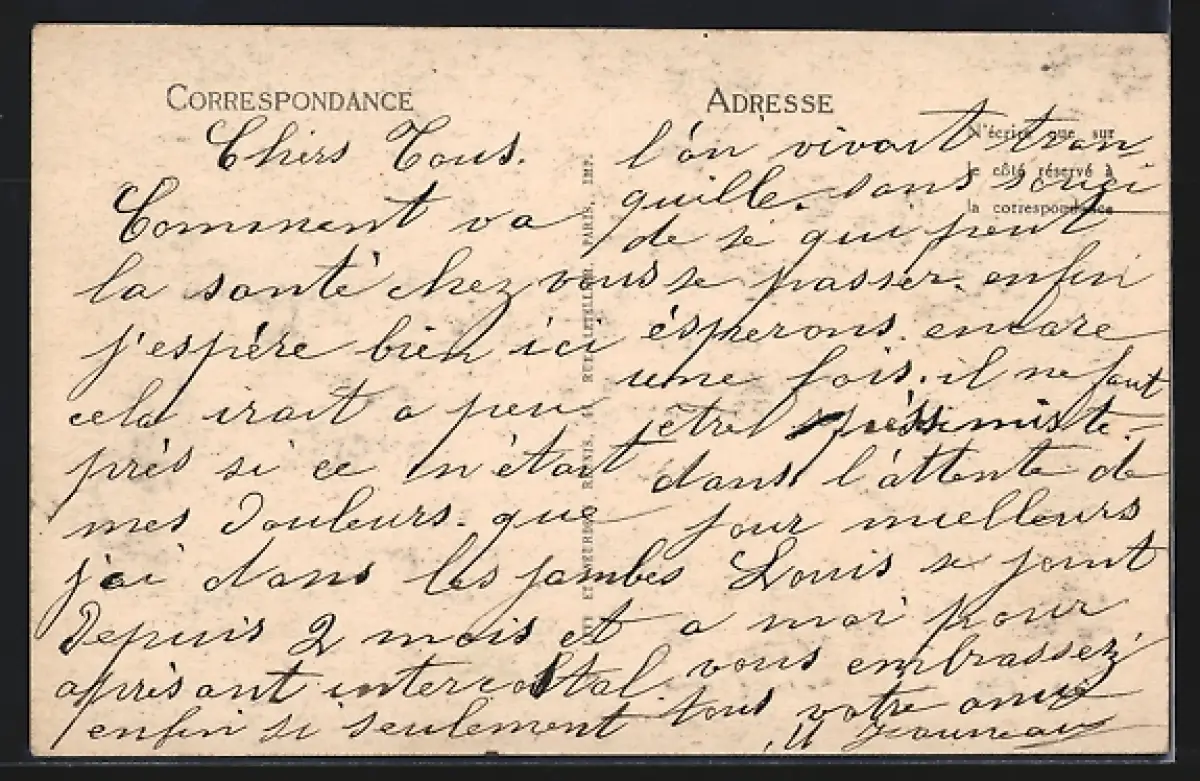 CORRESPONDANCE
Chers Tous.
Comment va
la santé chez vous
j'espère bien ici
cela irait a peu
près si ce n'était
mes Douleurs. que
j'ai dans les jambes
Depuis 2 mois et
aprésant intercostal.
enfin si seulement
ADRESSE
N'écrire que sur
le côté réservé à
la correspondance
l'on vivait tran-
quille. sans souçi
de sé qui peut
se passer. enfin
ésperons. encore
une fois. il ne faut
etre péssimiste. -
dans l'attente de
jour meilleurs
Louis se joint
a moi pour
vous embrassez
tous votre amie
PARIS, IMP.